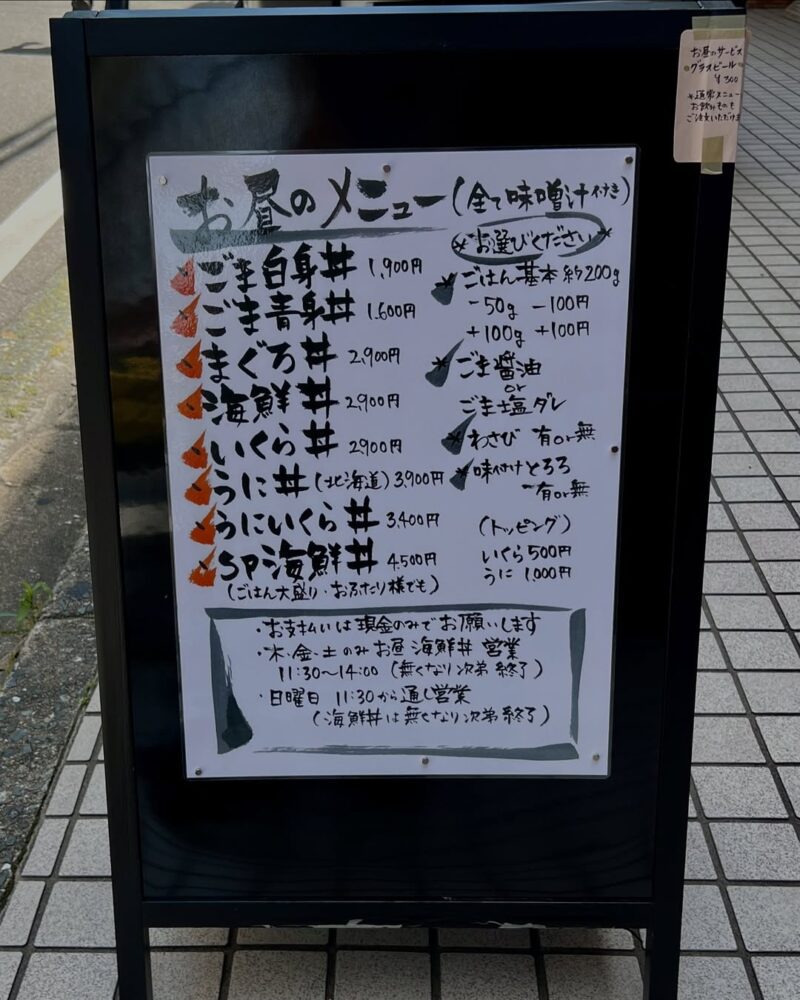 お昼のサービス
グラスビール
¥300
*通常メニュー
お飲みものも
ご注文いただけま
お昼のメニュー(全て味噌汁付き)
ごま白身丼 1,900円
ごま青身丼 1,600円
まぐろ丼 2,900円
海鮮丼 2,900円
いくら丼 2,900円
うに丼(北海道) 3,900円
うにいくら丼 3,400円
SP海鮮丼 4,500円
(ごはん大盛り・おふたり様でも)
*お選びください*
ごはん基本 約200g
-50g -100円
+100g +100円
ごま醤油
or
ごま塩ダレ
わさび 有or無
味付けとろろ
-有or無
(トッピング)
いくら 500円
うに 1,000円
・お支払いは現金のみでお願いします
・木・金・土のみお昼 海鮮丼 営業
11:30〜14:00 (無くなり次第終了)
・日曜日 11:30から通し営業
(海鮮丼は無くなり次第終了)